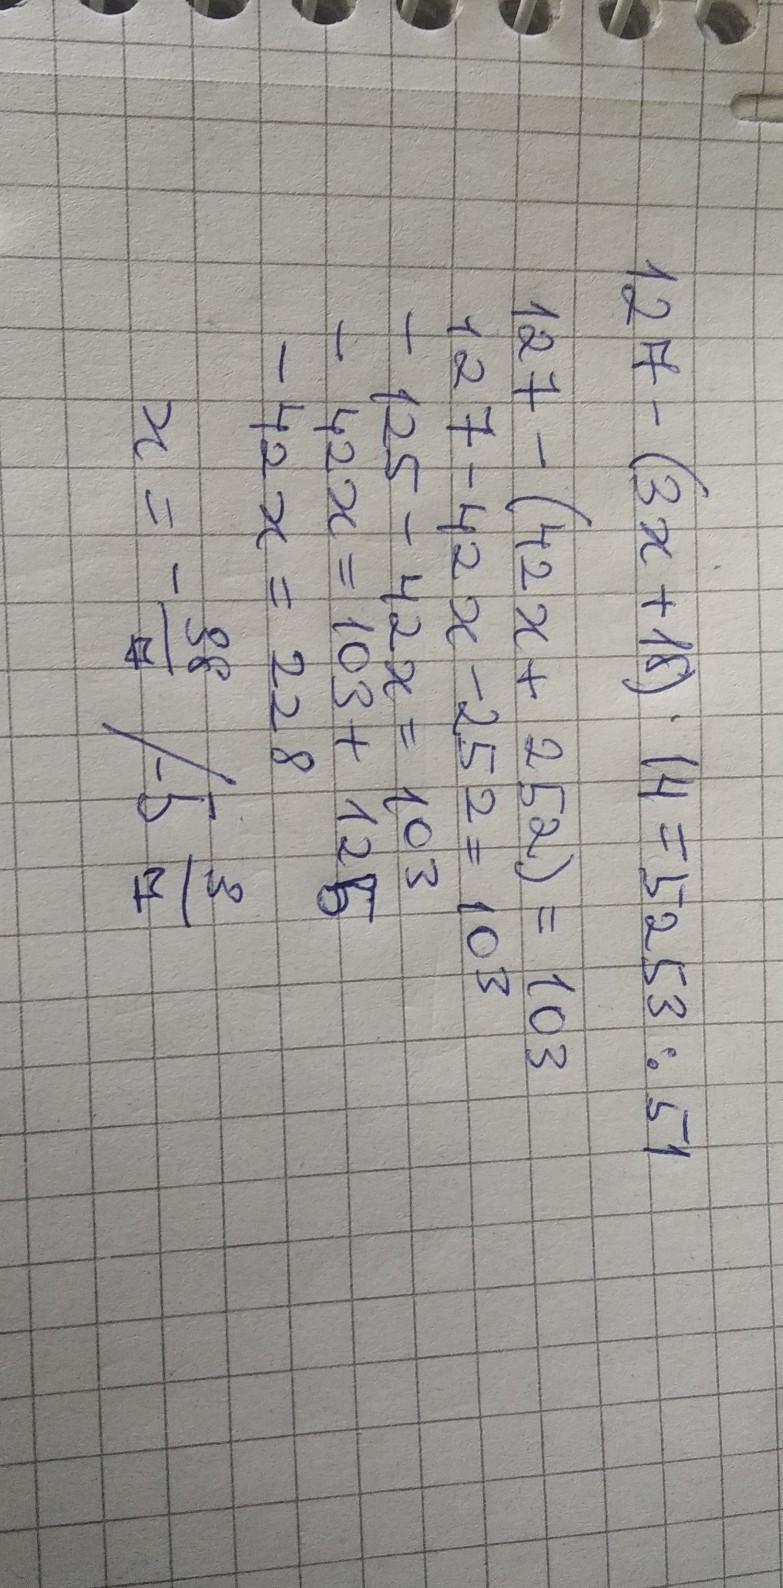 127 - (3x + 18) · 14 = 5253 : 51
127 - (42x + 252) = 103
127 - 42x - 252 = 103
- 125 - 42x = 103
- 42x = 103 + 125
- 42x = 228
x = - 38/7 / -5 3/7